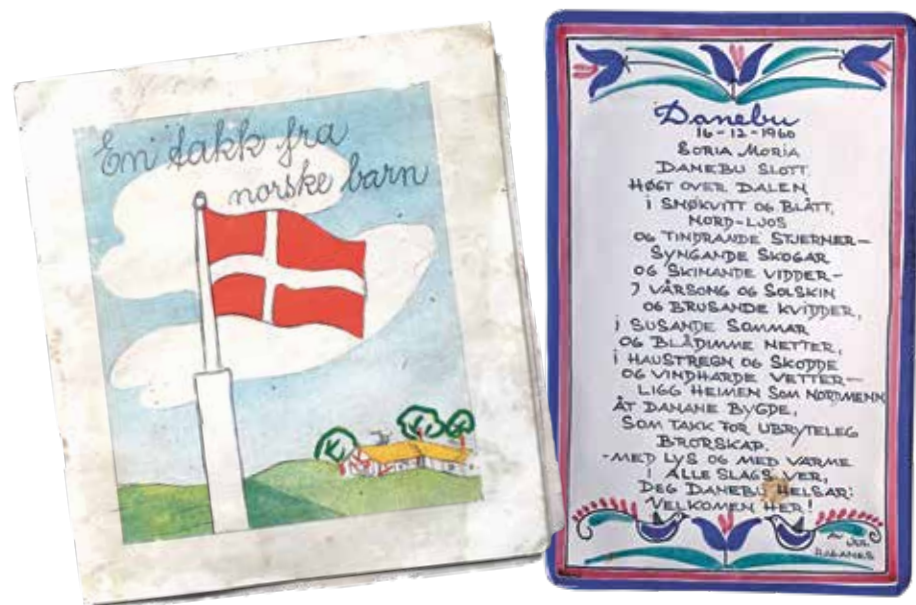 En takk fra
norske barn
Danebu
16-12-1960
SORIA MORIA
DANEBU SLOTT.
HØGT OVER DALEN
i SNØKVITT OG BLÅTT,
NORD-LJOS
OG TINDRANDE STJERNER-
SYNGANDE SKOGAR
OG SKINANDE VIDDER-
I VÅRSONG OG SOLSKIN
OG BRUSANDE KVIDDER,
i SUSANDE SOMMAR
OG BLÅDIMME NETTER,
i HAUSTREGN OG SKODDE
OG VINDHARDE VETTER-
LIGG HEIMEN SOM NORDMENN
ÅT DANANE BYGDE,
SOM TAKK FOR UBRYTELEG
BRORSKAP.
-MED LYS OG MED VARME
I ALLE SLAGS VER,
DEG DANEBU HELSAR:
VELKOMEN HER!